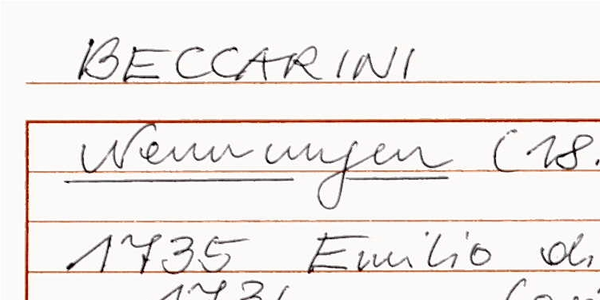 BECCARINI
Nennungen (18.
1735 Emilio di
173